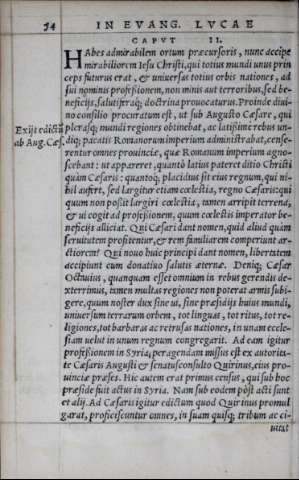 54 IN EVANG. LVCAE
CAPVT II.
HAbes admirabilem ortum præcursoris, nunc accipe
mirabiliorem Iesu Christi, qui totius mundi unus prin
ceps futurus erat, & uniuersas totius orbis nationes, ad
sui nominis professionem, non minis aut terroribus, sed be-
neficijs, salutiferaq; doctrina prouocaturus. Proinde diui-
no consilio procuratum est, ut sub Augusto Cæsare, qui
Exijt edictũ pleraſq; mundi regiones obtinebat, ac latissime rebus un-
ab Aug. Cæs. diq; pacatis Romanorum imperium administrabat, cense-
rentur omnes prouinciæ, quæ Romanum imperium agno-
scebant: ut appareret, quantò latius pateret ditio Christi
quàm Cæsaris: quantoq; placidius sit eius regnum, qui ni-
hil aufert, sed largitur etiam cœlestia, regno Cæsaris: qui
quum non possit largiri cœlestia, tamen arripit terrena,
& ui cogit ad professionem, quum cœlestis imperator be-
neficijs alliciat. Qui Cæsari dant nomen, quid aliud quàm
seruitutem profitentur, & rem familiarem comperiunt ar-
ctiorem? Qui nouo huic principi dant nomen, libertatem
accipiunt cum donatiuo salutis æternæ. Deniq; Cæsar
Octauius, quanquam esset omnium in rebus gerendis de-
xterrimus, tamen multas regiones non poterat armis subi-
gere, quum noster dux sine ui, sine præsidijs huius mundi,
uniuersum terrarum orbem, tot linguas, tot ritus, tot re-
ligiones, tot barbaras ac retrusas nationes, in unam eccle-
siam uelut in unum regnum congregarit. Ad eam igitur
professionem in Syria, peragendam missus est ex autorita-
te Cæsaris Augusti & senatusconsulto Quirinus, eius pro-
uinciæ præses. Hic autem erat primus census, qui sub hoc
præside fuit actus in Syria. Nam sub eodem pòst acti sunt
et alij. Ad Cæsaris igitur edictum quod Quirinus promul
garat, proficiscuntur omnes, in suam quisq; tribum ac ci-
uitat